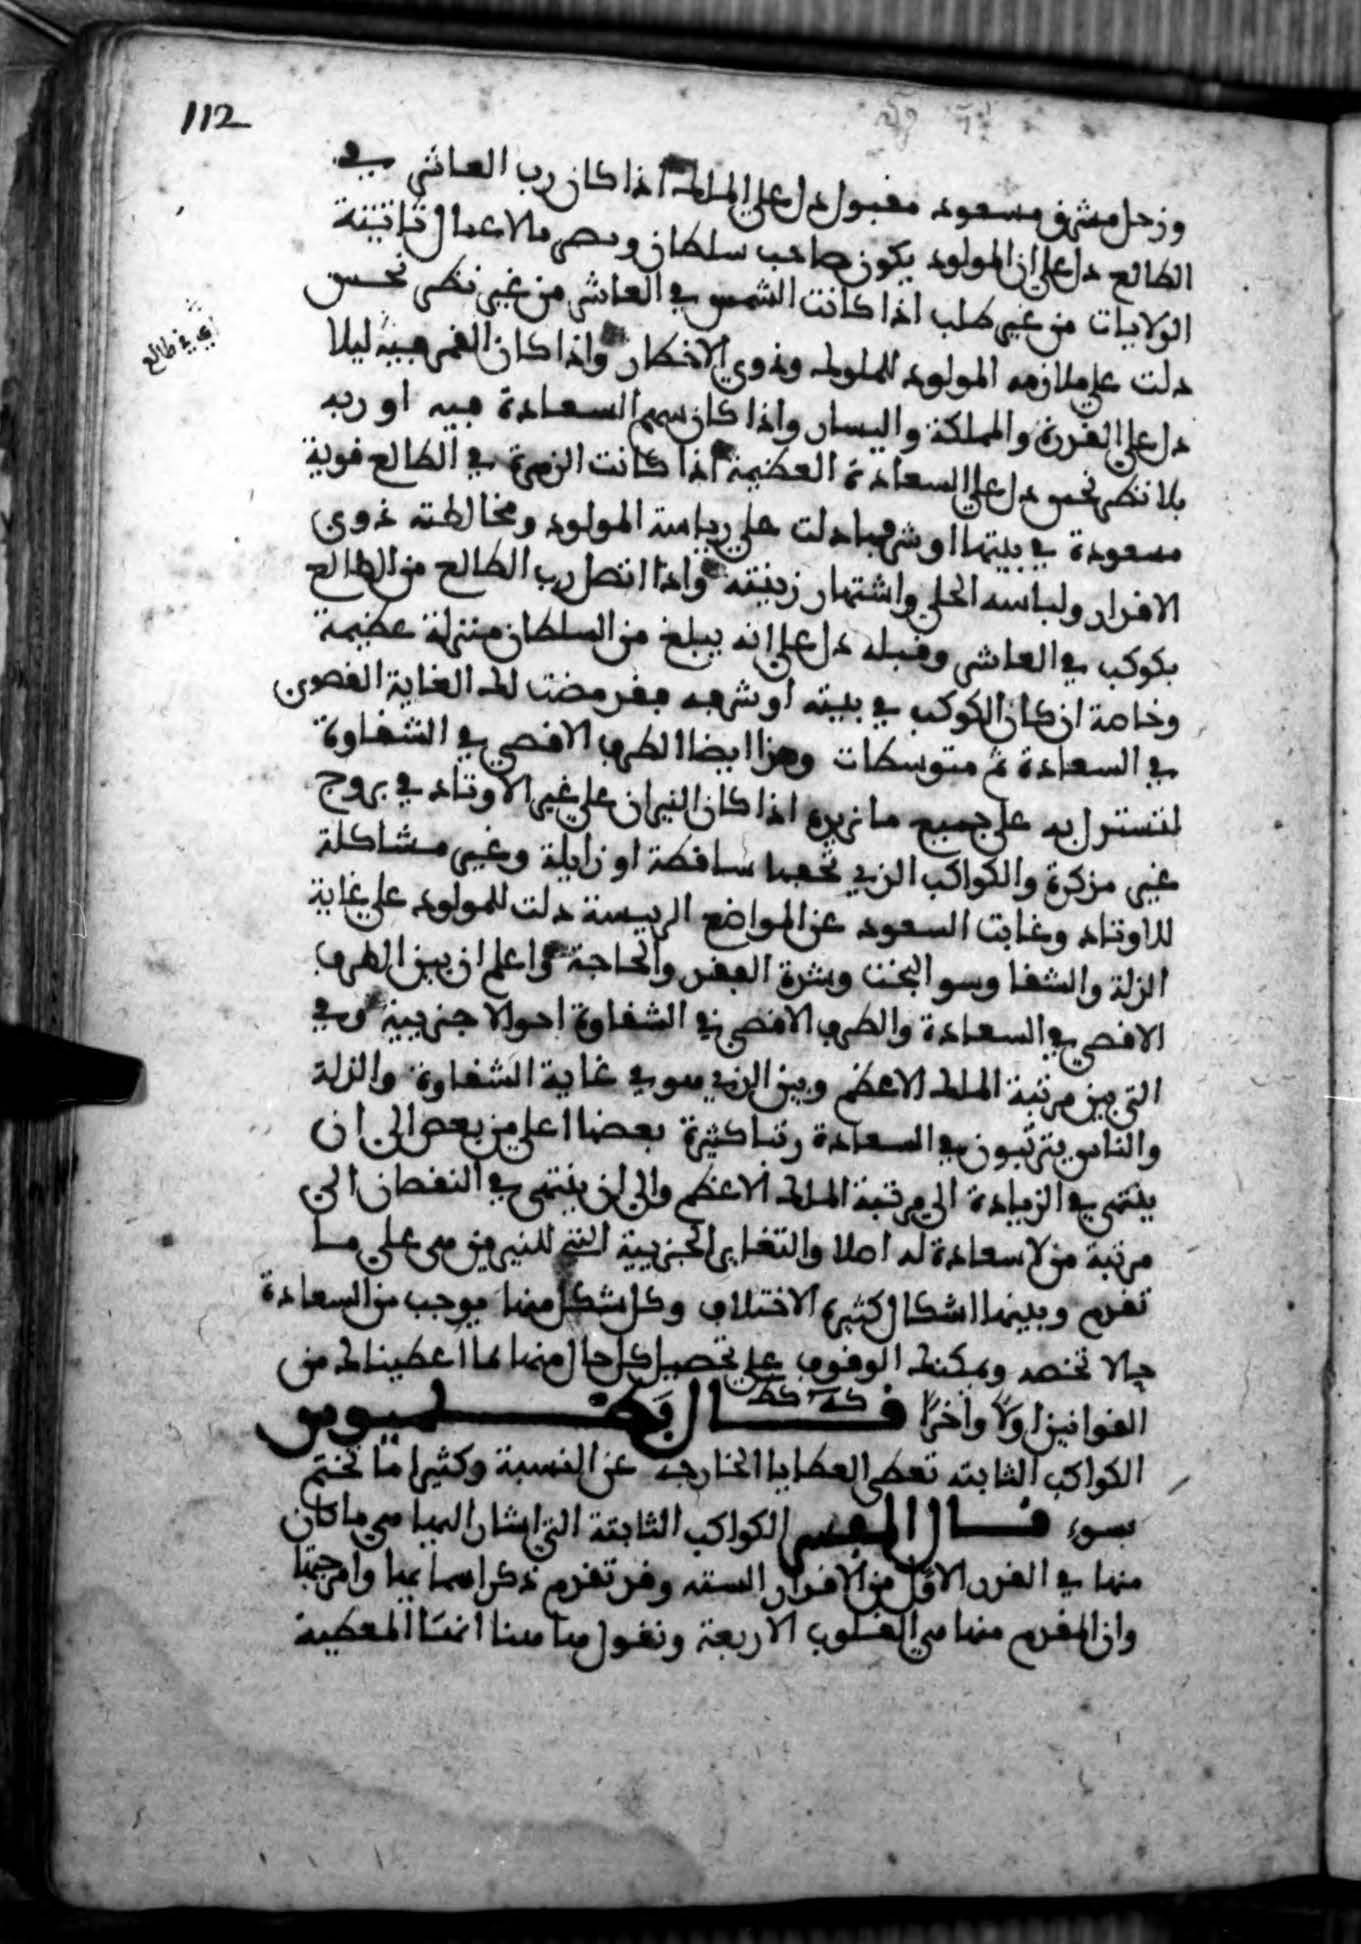 112
وزحل مشرق مسعود مقبول دل على الملك اذا كان رب العاشر في
الطالع دل على ان المولود يكون صاحب سلطان وبصر بالاعمال تاتيه
الولايات من غير طلب اذا كانت الشمس في العاشر من غير نظر نحس
دلت على ملازمه المولود للملوك وذوي الاخطار واذا كان القمر فيه ليلا
اي في طالع
دل على القدرة والمملكة واليسار واذا كان سهم السعادة فيه او ربه
بلا نظر نحس دل على السعادة العظيمة اذا كانت الزهرة في الطالع قوية
مسعودة في بيتها او شرفها دلت على رياسة المولود ومخالطته ذوي
الاقدار ولباسه الحلي واشتهار زينته واذا اتصل رب الطالع من الطالع
بكوكب في العاشر وقبله دل على انه يبلغ من السلطان منزلة عظيمة
وخاصة ان كان الكوكب في بيته او شرفه فقد مضت لك الغاية القصوى
في السعادة ثم متوسطات وهذا ايضا الطرف الاقصى في الشقاوة
لتستدل به على جميع ما نريده اذا كان النيران على غير الاوتاد في بروج
غير مذكرة والكواكب الذي تحفها ساقطة او زايلة وغير مشاكلة
للاوتاد وغابت السعود عن المواضع الرييسة دلت للمولود على غاية
الذلة والشقا وسو البخت وشدة الفقر والحاجة واعلم ان بين الطرف
الاقصى في السعادة والطرف الاقصى في الشقاوة احوالا جزييية وهي
التي بين مرتبة الملك الاعظم وبين الذي هو في غاية الشقاوة والذلة
والناس يترتبون في السعادة رتبا كثيرة بعضها اعلى من بعض الى ان
ينتهى في الزيادة الى مرتبة الملك الاعظم والى ان ينتهى في النقصان الى
مرتبة من لا سعادة له اصلا والتغاير الجزييية التي للنيرين هي على ما
تقدم وبينهما اشكال كثيرة الاختلاف وكل شكل منها يوجب من السعادة
حالا تختصه ويمكنك الوقوف على تحصيل كل حال منها بما اعطيناك من
القوانين اولا واخرا قال بطلميوس
الكواكب الثابته تعطى العطايا الخارجه عن النسبة وكثيرا ما تختم
بسوء قال المفسر الكواكب الثابتة التي اشار اليها هي ما كان
منها في القدر الاول من الاقدار السته وقد تقدم ذكر اسمايها وامزجتها
وان المقدم منها هي القلوب الاربعة ونقول ها هنا انها المعطية